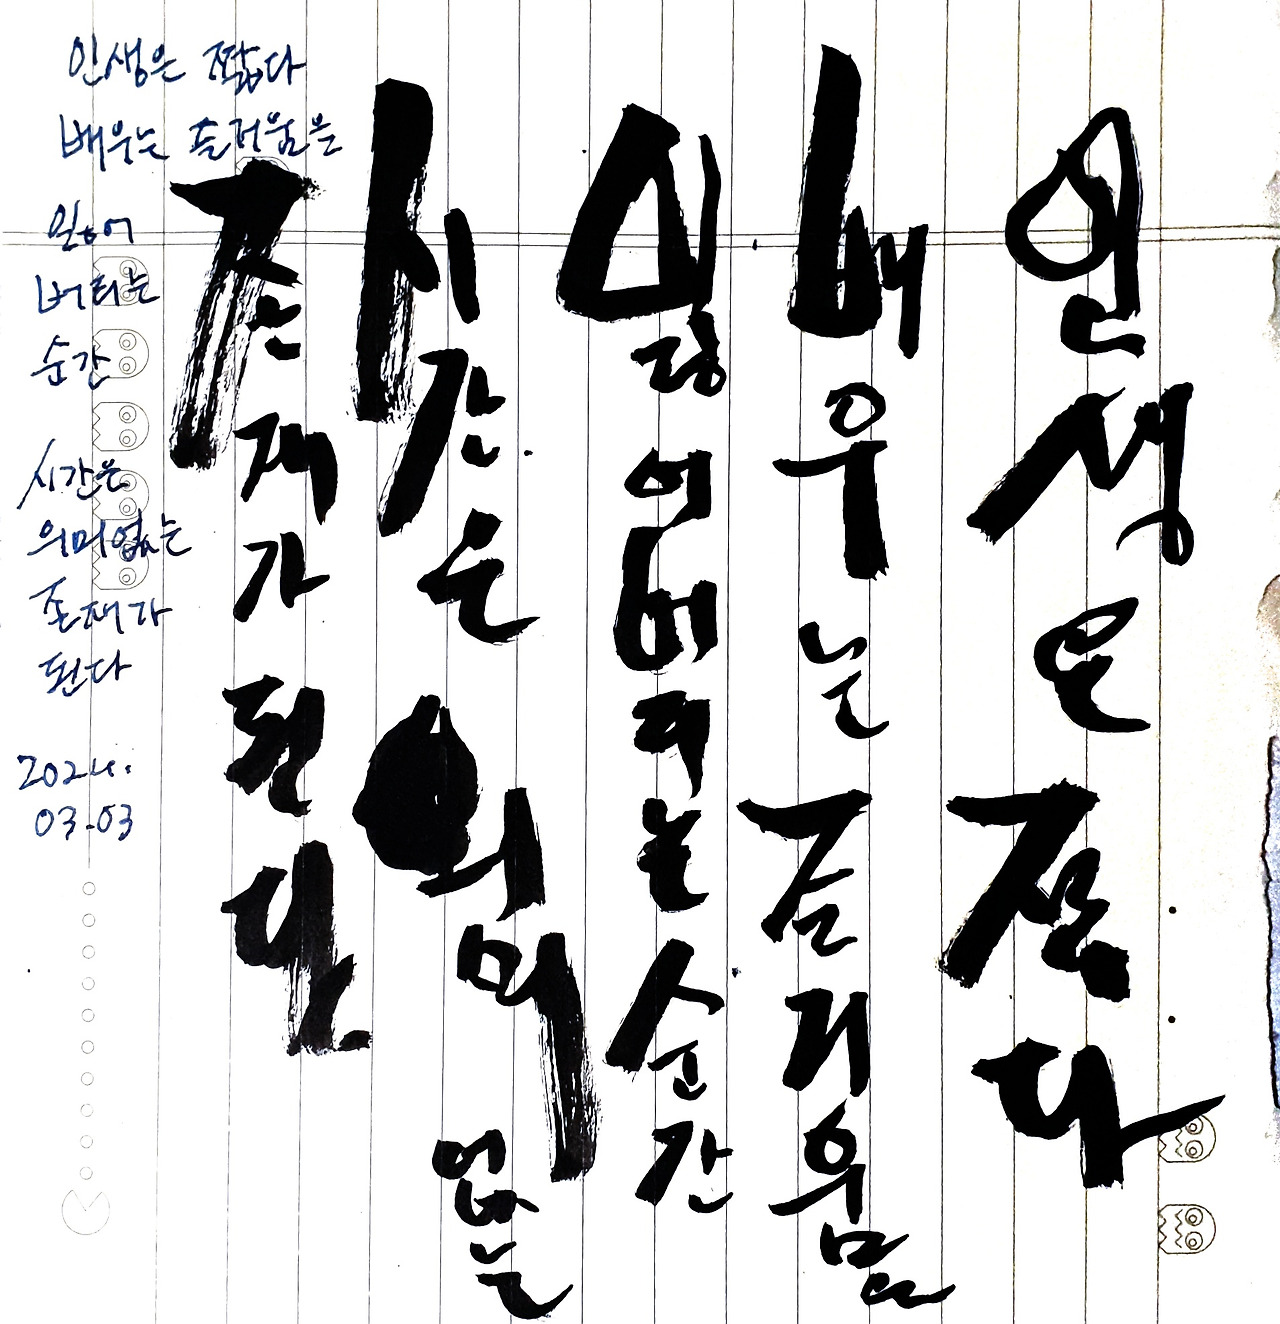 인생은 짧다
배우는 즐거움을
잃어
버리는
순간
시간은
의미없는
존재가
된다
2024.
03.03
인생은 짧다
배우는 즐거움을
잃어버리는 순간
시간은 의미 없는
존재가 된다